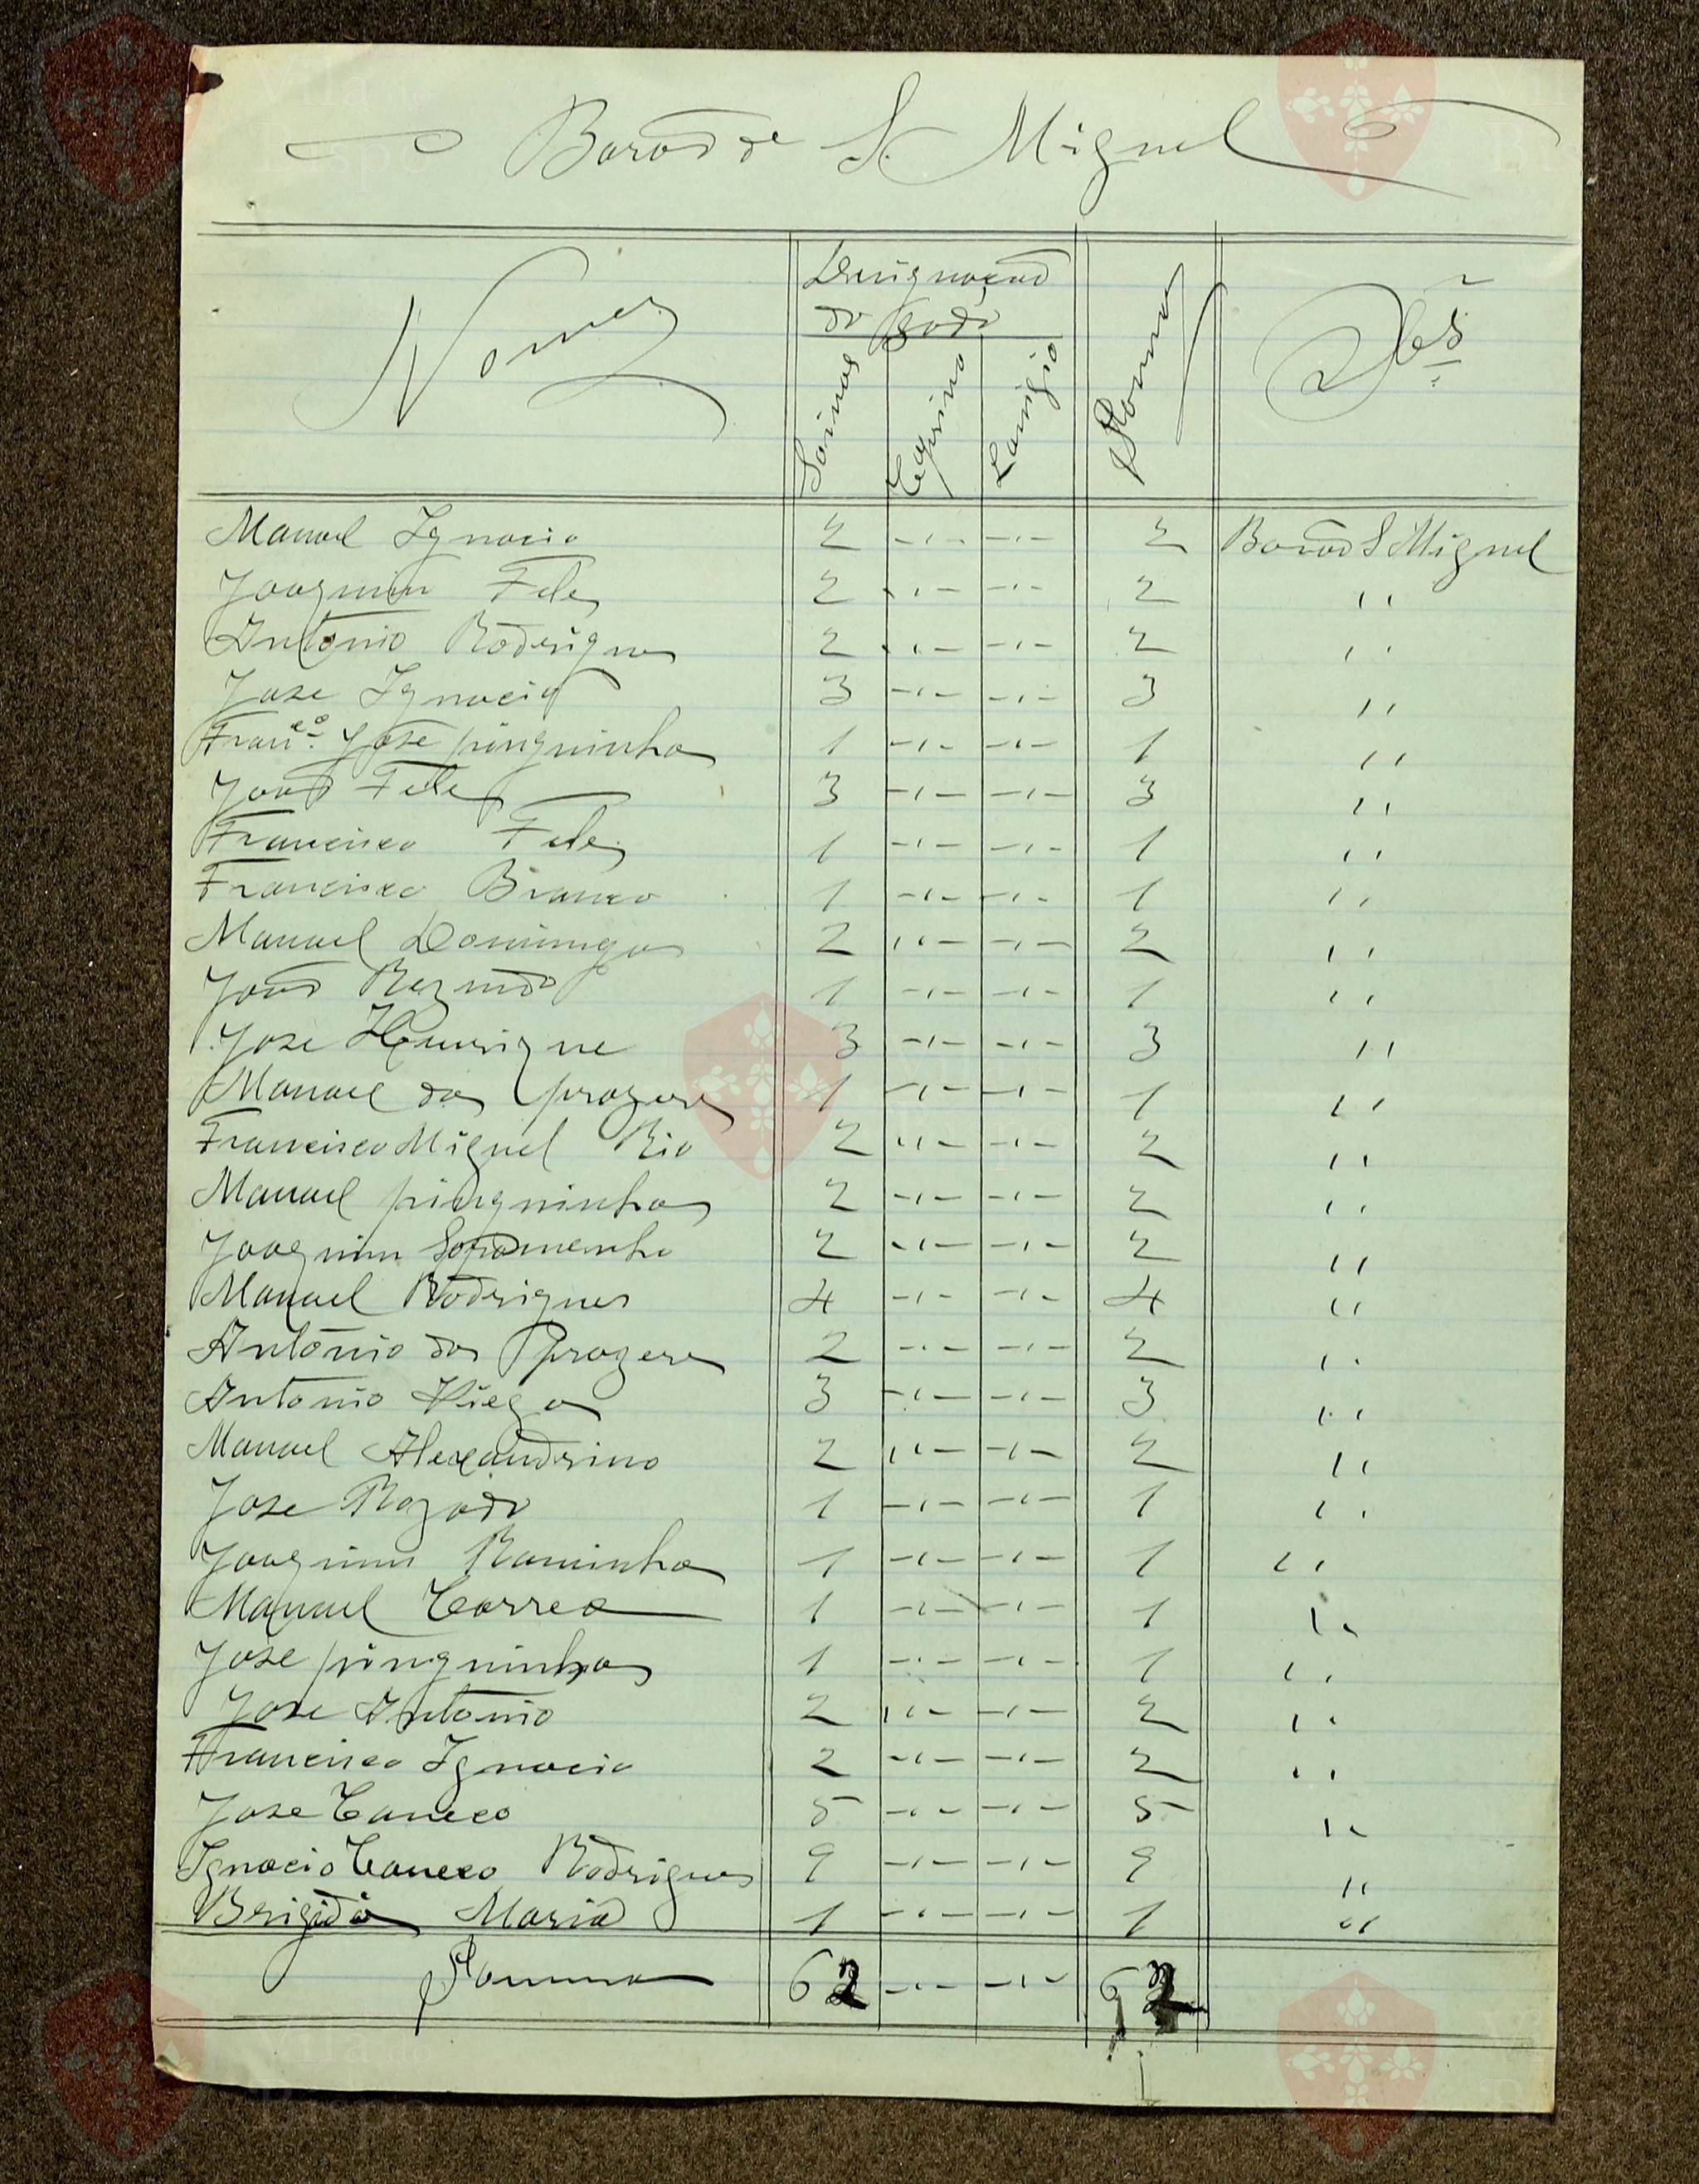 Barão de S. Miguel
Nomes
Designação
do gado
Suinos
Caprino
Lanigio
Somma
Obs
Manuel Ignacio 2 -- -- 2 Barão S Miguel
Joaquim Feles 2 -- -- 2 ,,
Antonio Rodrigues 2 -- -- 2 ,,
Jose Ignacio 3 -- -- 3 ,,
Franco. Jose pinguinha 1 -- -- 1 ,,
João Feles 3 -- -- 3 ,,
Francisco Feles 1 -- -- 1 ,,
Francisco Branco 1 -- -- 1 ,,
Manuel Domingos 2 -- -- 2 ,,
João 1 -- -- 1 ,,
Jose Henrique 3 -- -- 3 ,,
Manuel dos prazeres 1 -- -- 1 ,,
Francisco Miguel Rio 2 -- -- 2 ,,
Manuel pinguinhas 2 -- -- 2 ,,
Joaquim 2 -- -- 2 ,,
Manuel Rodrigues 4 -- -- 4 ,,
Antonio dos prazeres 2 -- -- 2 ,,
Antonio Viegas 3 -- -- 3 ,,
Manuel Alexandrino 2 -- -- 2 ,,
Jose Rozado 1 -- -- 1 ,,
Joaquim Raminhos 1 -- -- 1 ,,
Manuel Correa 1 -- -- 1 ,,
Jose pinguinhas 1 -- -- 1 ,,
Jose Antonio 2 -- -- 2 ,,
Francisco Ignacio 2 -- -- 2 ,,
Jose Caneco 5 -- -- 5 ,,
Ignacio Caneco Rodrigues 9 -- -- 9 ,,
Brigida Maria 1 -- -- 1 ,,
Somma 62 -- -- 62